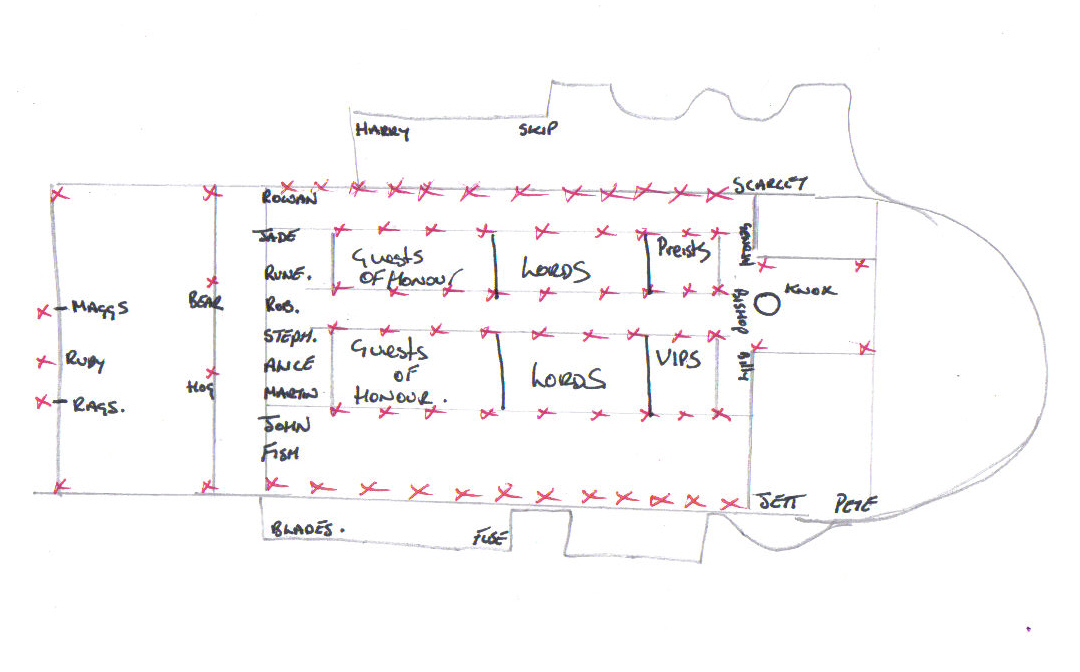 HARRY
SKIP
SCARLET
ROWAN
JADE
RUNE.
ROB.
STEPH.
ALICE
MARTIN
JOHN
FISH
Guests
OF HONOUR
LORDS
Preists
BISHOP
KNOX
MAGGS
RUBY
RAGS.
BEAR
HOG
Guests
OF
HONOUR.
LORDS
VIPS
BILLY
JETT
PETE
BLADES.
FUSE